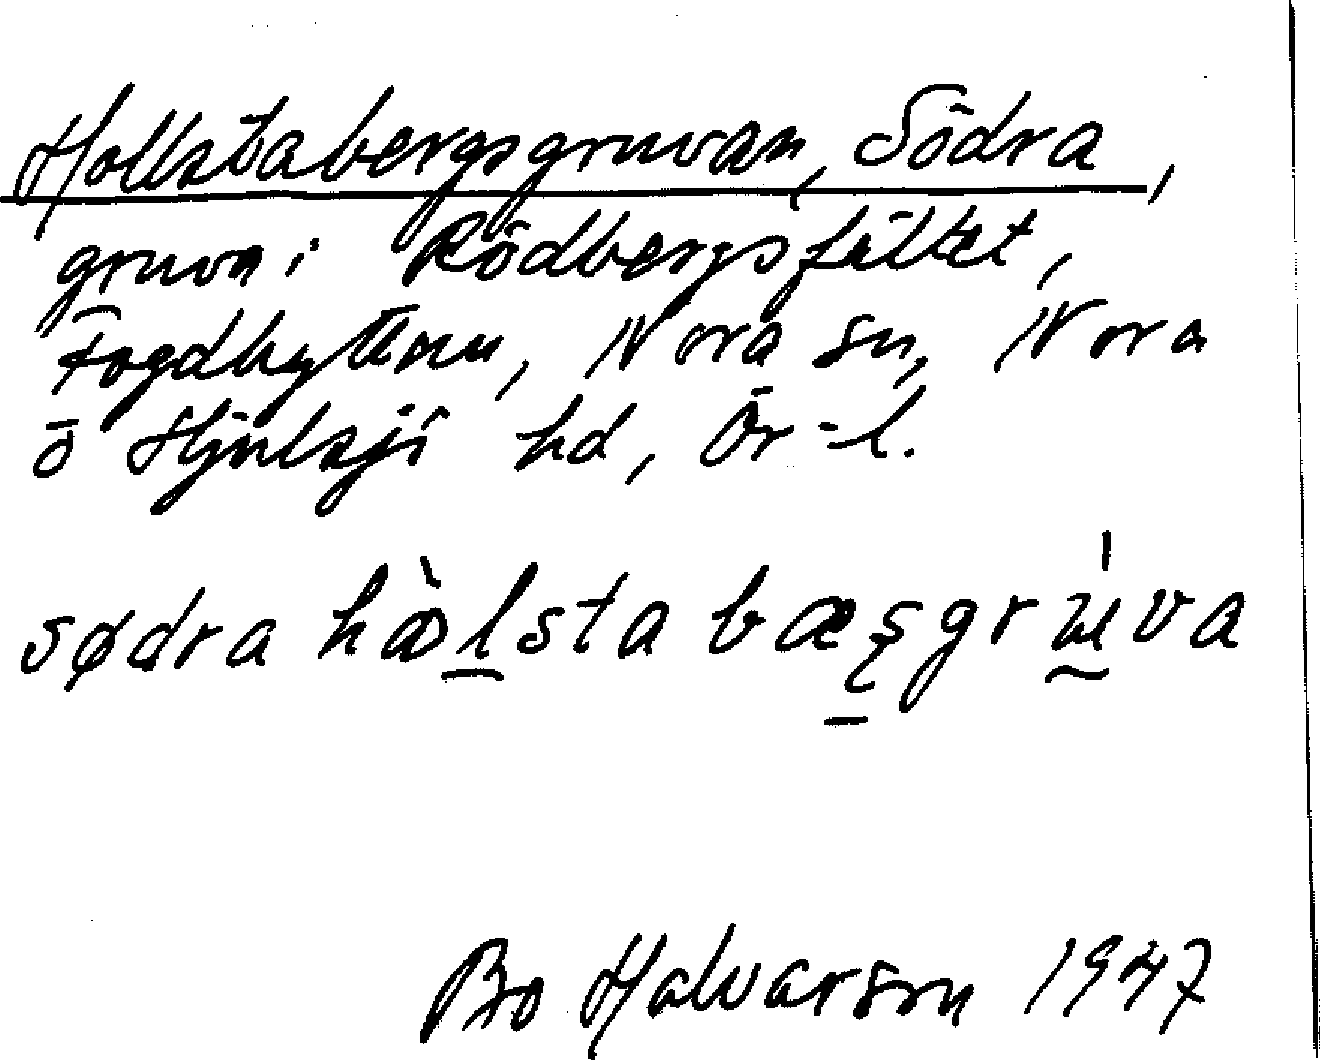 Hollstabergsgruvan, Södra,
gruva i Rödbergsfältet,
Fogdhyttan, Nora sn, Nora
o Hjulsjö hd, Ör-l.
södra
Bo Halvarson 1947